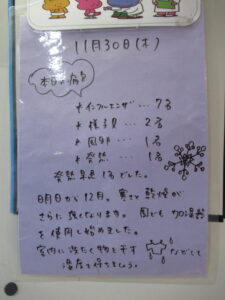 11月30日(木)
本日の病気
インフルエンザ … 7名
様子見 … 2名
風邪 … 1名
発熱 … 1名
発熱早退1名でした。
明日から12月。寒さと乾燥が
さらに強くなります。園でも加湿器
を使用し始めました。
室内に洗たく物を干す などして
湿度を保ちましょう。